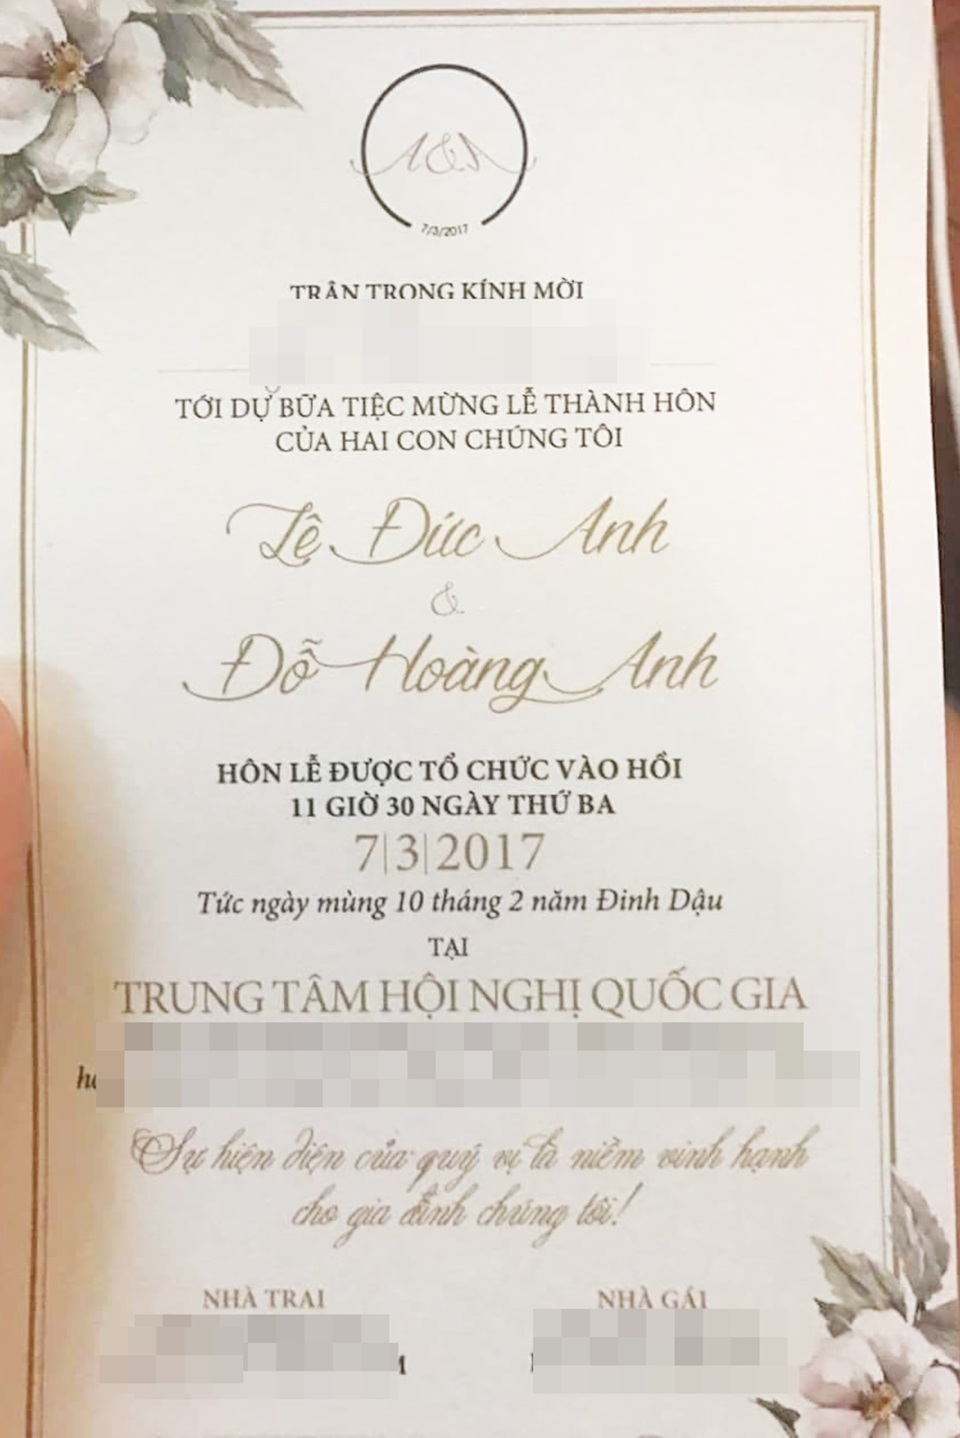 A&A
7/3/2017
TRÂN TRỌNG KÍNH MỜI
TỚI DỰ BỮA TIỆC MỪNG LỄ THÀNH HÔN
CỦA HAI CON CHÚNG TÔI
Lê Đức Anh
&
Đỗ Hoàng Anh
HÔN LỄ ĐƯỢC TỔ CHỨC VÀO HỒI
11 GIỜ 30 NGÀY THỨ BA
7|3|2017
Tức ngày mùng 10 tháng 2 năm Đinh Dậu
TẠI
TRUNG TÂM HỘI NGHỊ QUỐC GIA
Sự hiện diện của quý vị là niềm vinh hạnh
cho gia đình chúng tôi!
NHÀ TRAI NHÀ GÁI